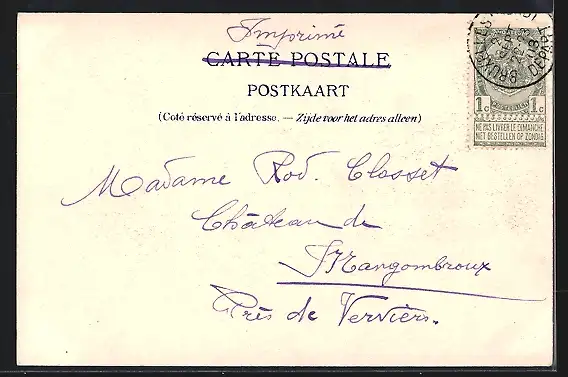 Imprimé
CARTE POSTALE
POSTKAART
(Coté réservé à l'adresse. — Zijde voor het adres alleen)
1c 1c
NE PAS LIVRER LE DIMANCHE
NIET BESTELLEN OP ZONDAG
BRUXELLES
DÉPART
Madame Rod. Closset
Château de
Mangombroux
Près de Verviers.